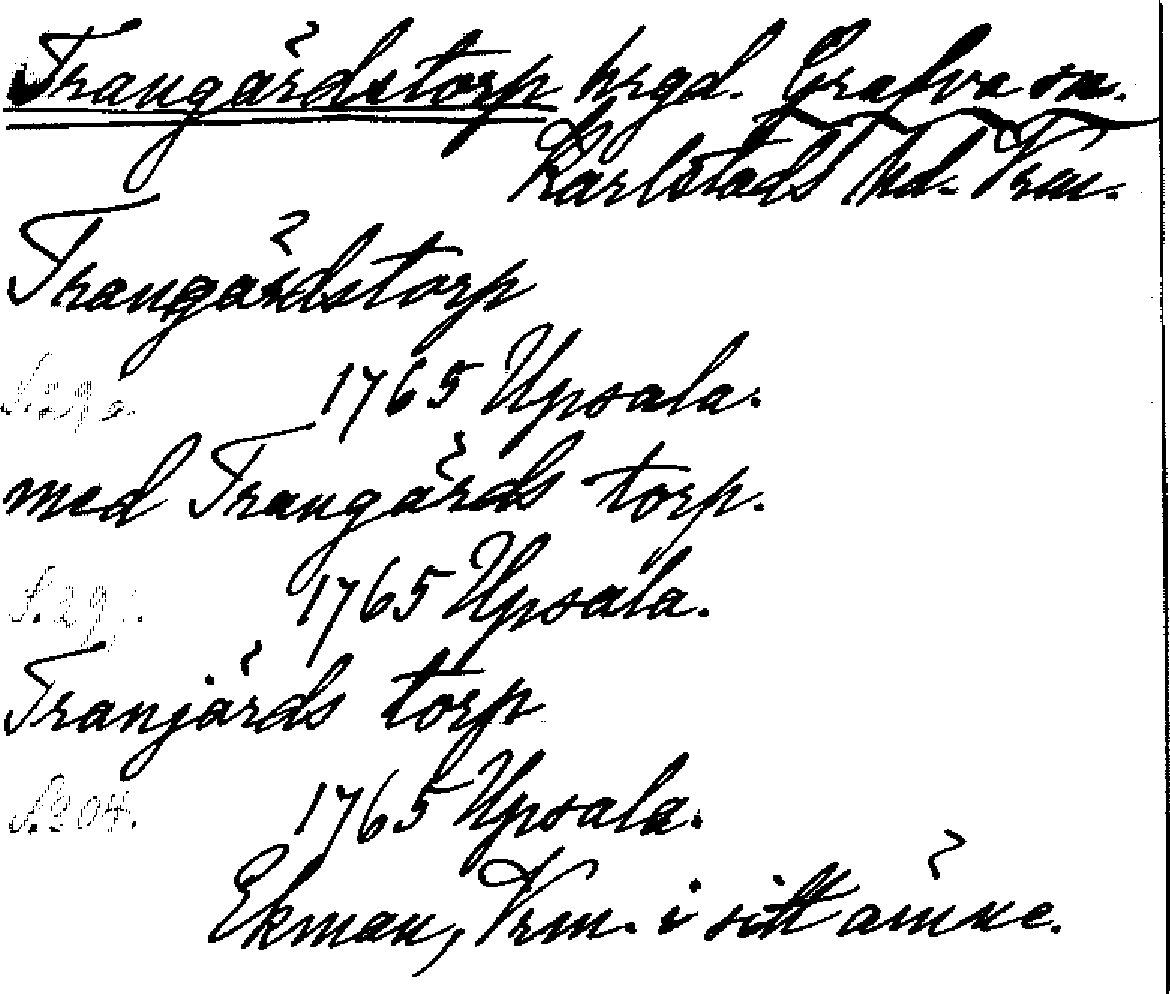 Trangärdstorp hrgd. Grafva sn.
Karlstads hd. Vrm.
Trangärdstorp
1765 Upsala.
med Trangärds torp.
S. 29 1765 Upsala.
Tranjärds torp
S. 204. 1765 Upsala.
Ekman, Vrm. i sitt ämne.